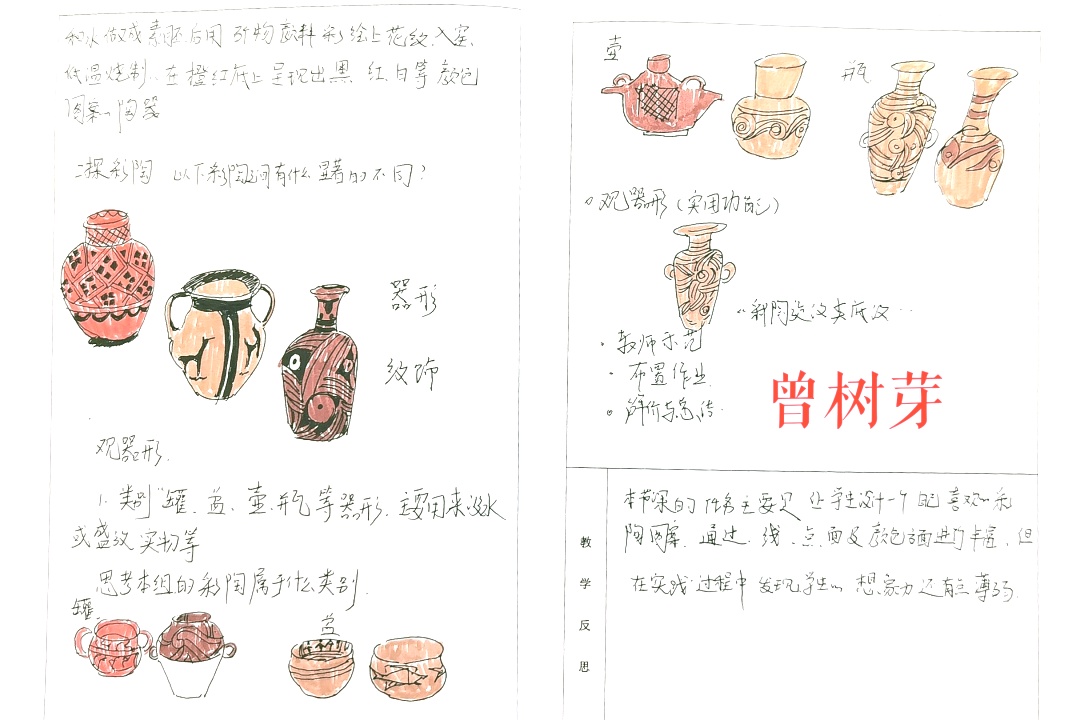 和水做成素胚后用矿物颜料彩绘上花纹、入窑、
低温烧制、在橙红底上呈现出黑、红、白等颜色
图案的陶器
二探彩陶 以下彩陶之间有什么显著的不同？
器形
纹饰
观器形.
1. 类别 罐、盆、壶、瓶等器形.主要用来
或盛 实物等
思考本组的彩陶属于什么类别.
罐.
盆
壶
瓶
观器形（实用功能）
彩陶
教师示范
布置作业
评价与
曾树芽
教学反思
本节课的任务主要是 让学生设计一个自己喜欢的彩
陶图案.通过、线、点、面及颜色方面进行丰富，但
在实践过程中发现学生的想象力还有点薄弱.